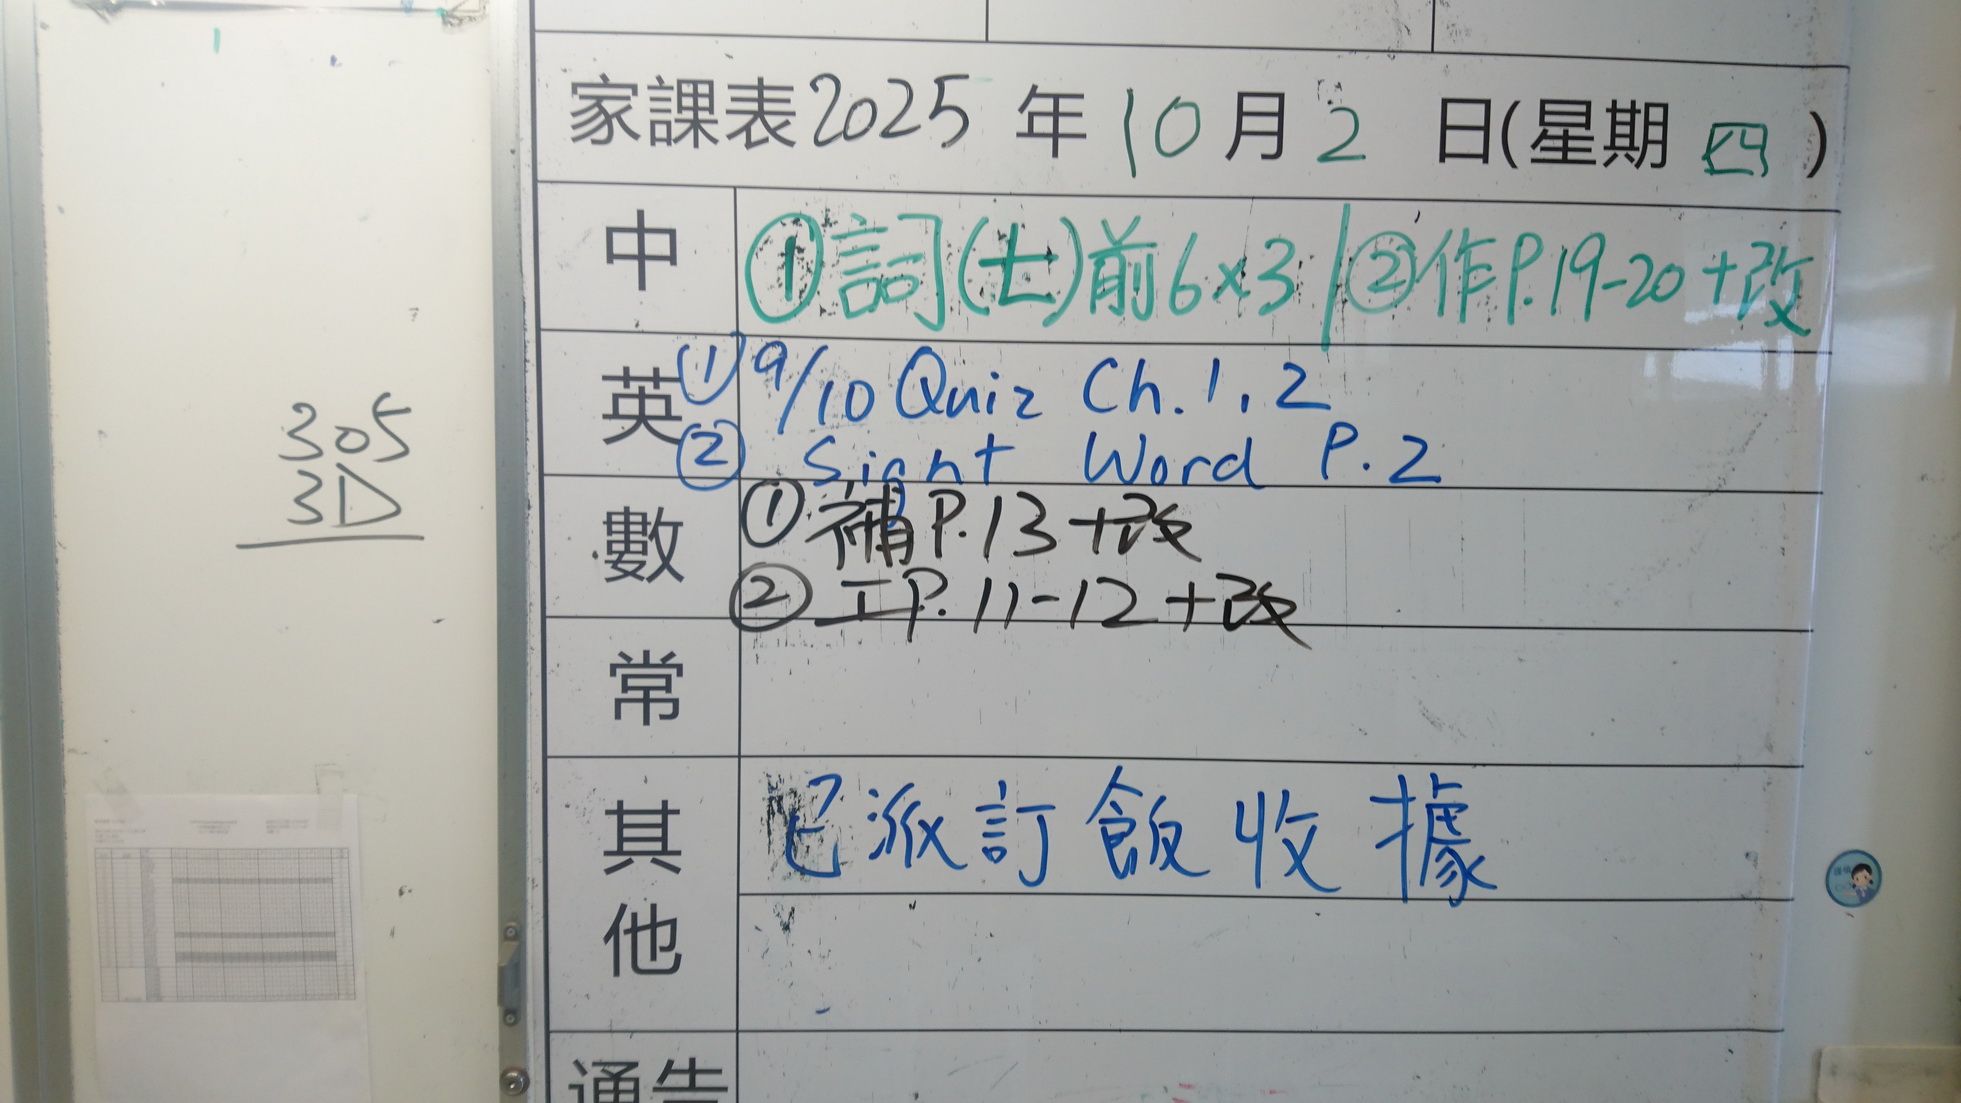 家課表2025年10月2日(星期四)
中
①詞(七)前6×3/②作P.19-20+改
英
①9/10 Quiz Ch.1,2
②Signt Word P.2
數
①補P.13+改
②工P.11-12+改
常
其他
已派訂飯收據
通告
305
3D